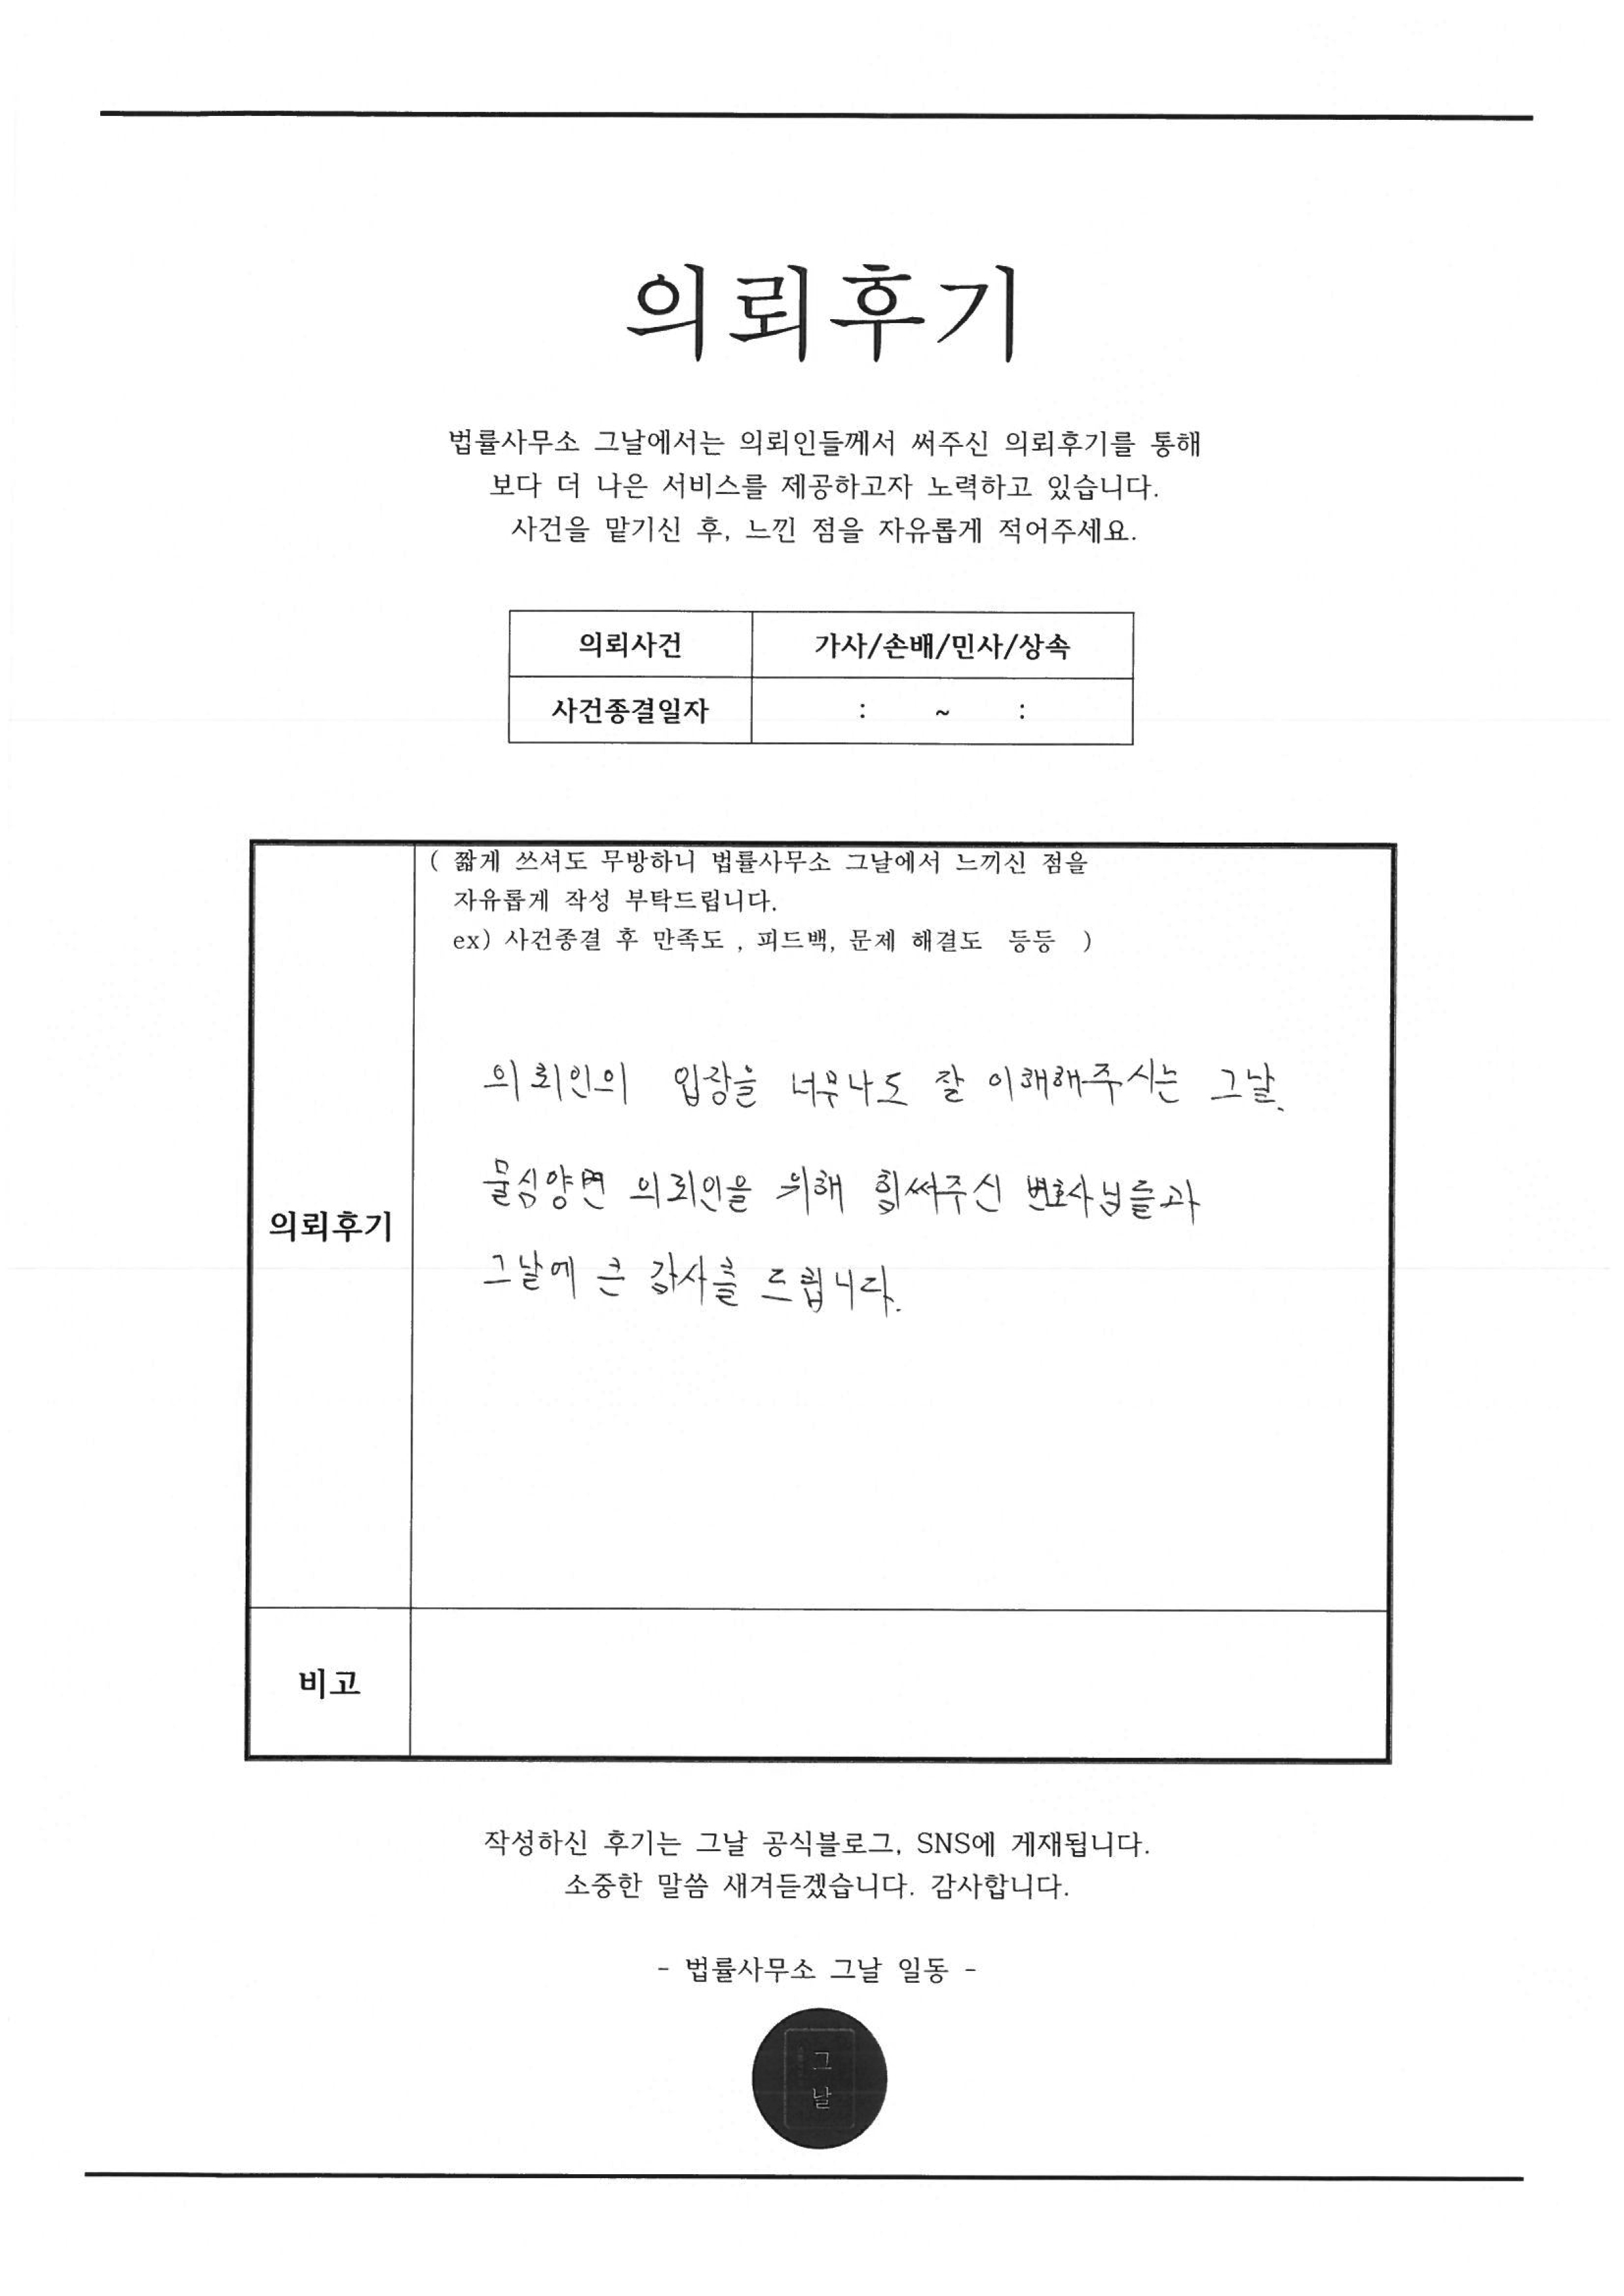 의뢰후기
법률사무소 그날에서는 의뢰인들께서 써주신 의뢰후기를 통해
보다 더 나은 서비스를 제공하고자 노력하고 있습니다.
사건을 맡기신 후, 느낀 점을 자유롭게 적어주세요.
의뢰사건 가사/손배/민사/상속
사건종결일자 : ~ :
( 짧게 쓰셔도 무방하니 법률사무소 그날에서 느끼신 점을
자유롭게 작성 부탁드립니다.
ex) 사건종결 후 만족도 , 피드백, 문제 해결도 등등 )
의뢰인의 입장을 너무나도 잘 이해해주시는 그날.
물심양면 의뢰인을 위해 힘써주신 변호사님들과
의뢰후기
그날에 큰 감사를 드립니다.
비고
작성하신 후기는 그날 공식블로그, SNS에 게재됩니다.
소중한 말씀 새겨듣겠습니다. 감사합니다.
- 법률사무소 그날 일동 -
그
날